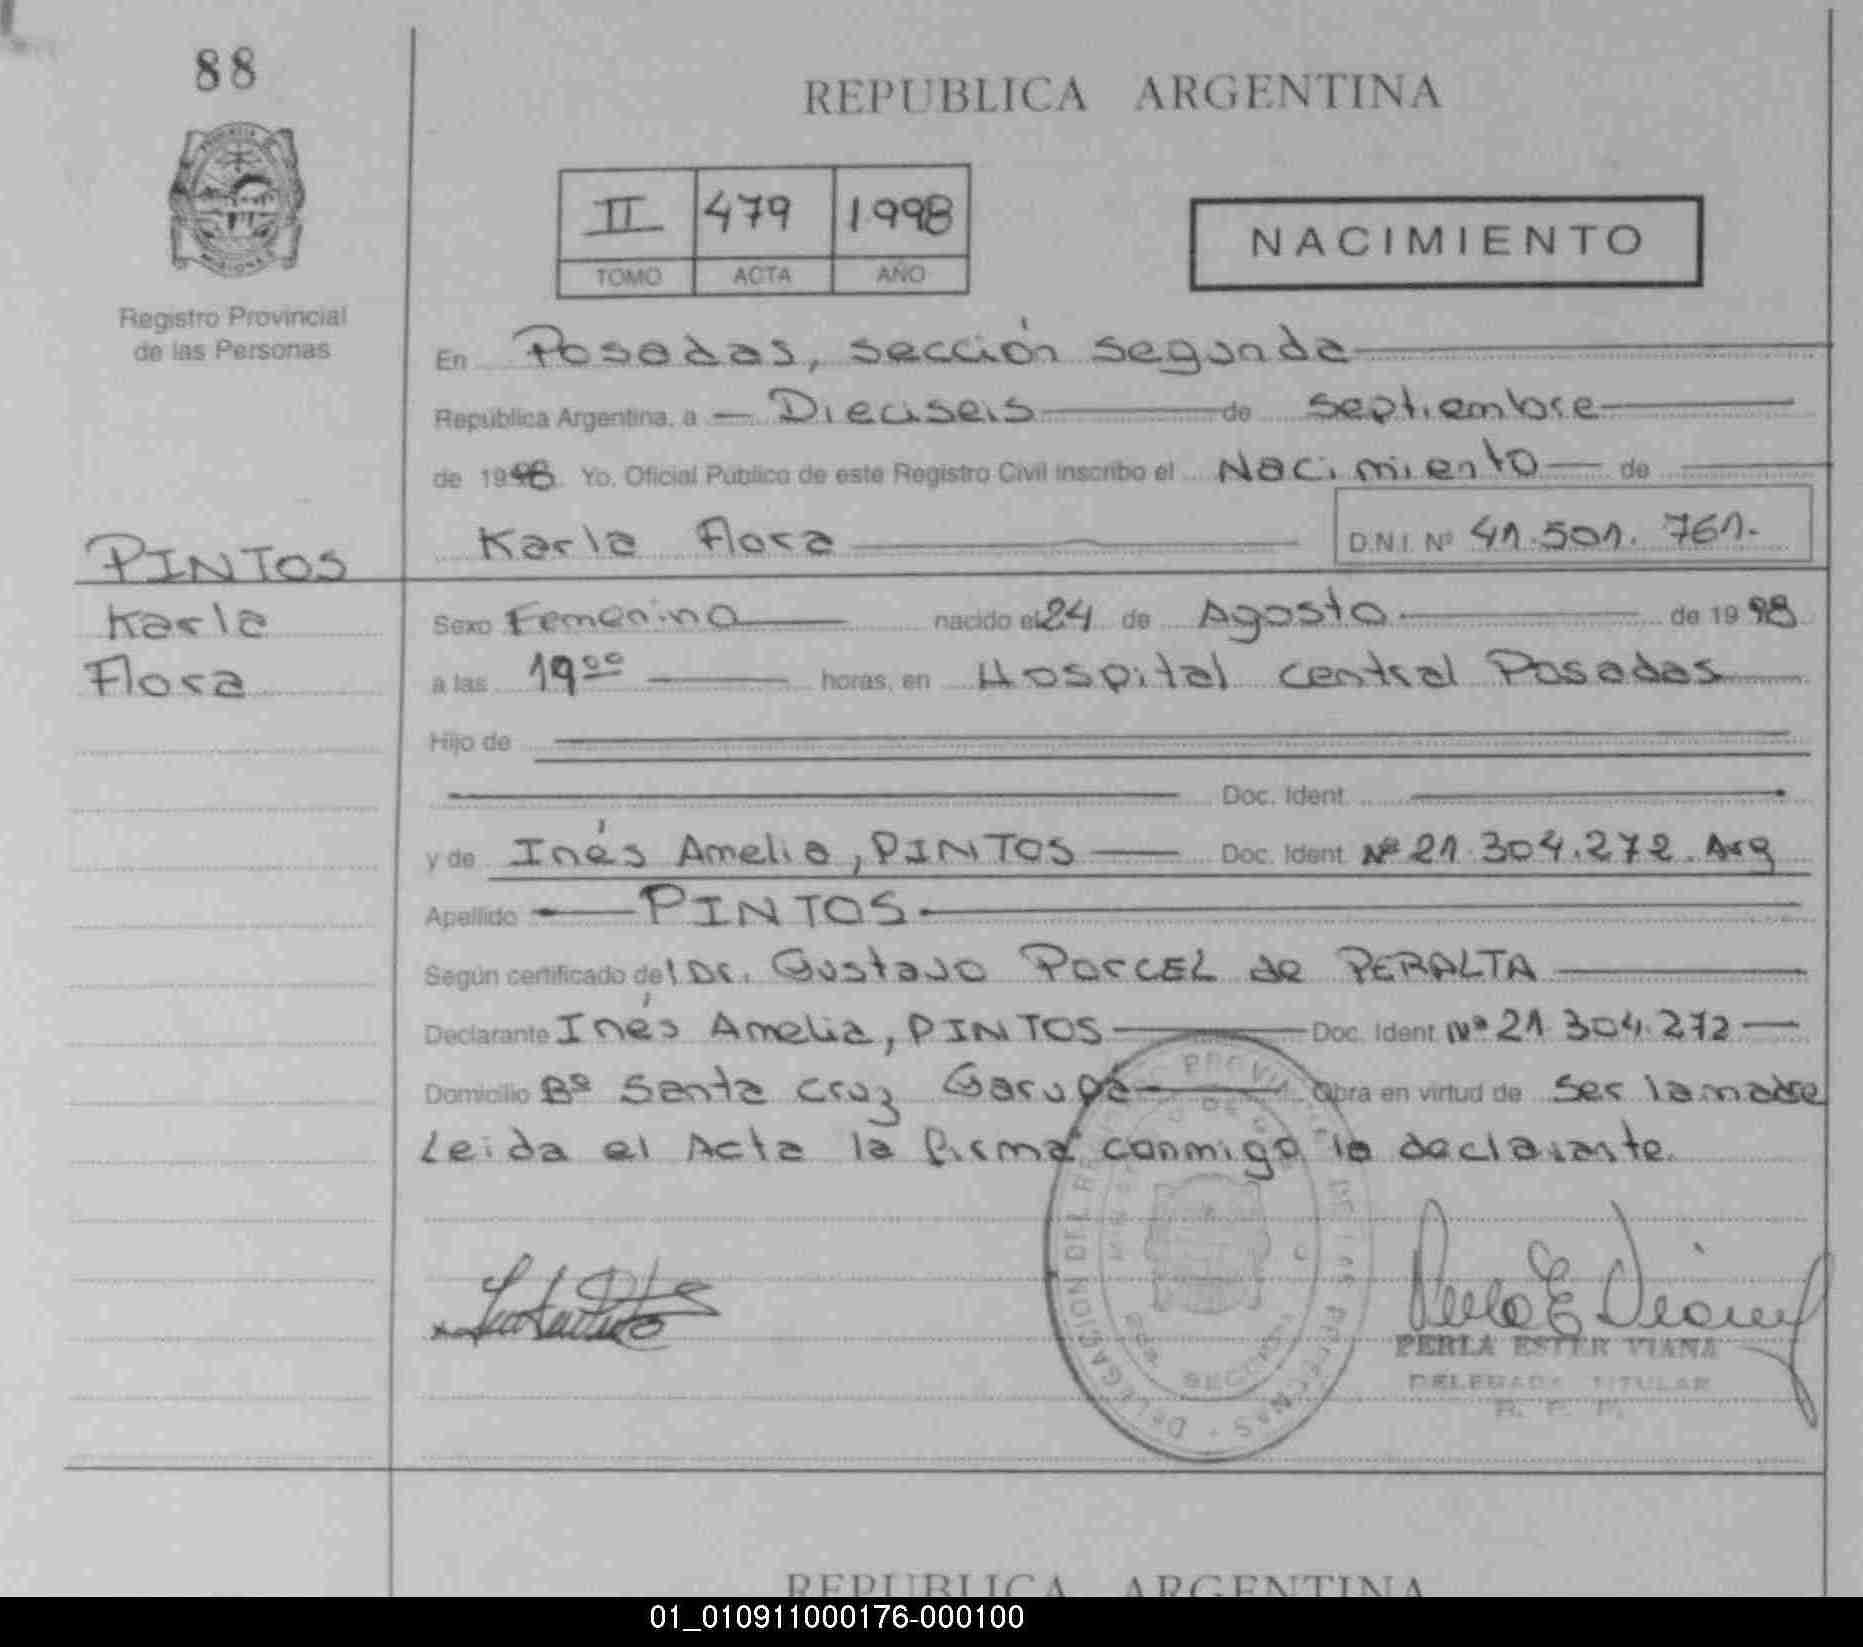 88
REPUBLICA ARGENTINA
II 479 1998
TOMO ACTA AÑO
NACIMIENTO
MISIONES
Registro Provincial
de las Personas
En Posadas, sección segunda
República Argentina, a Dieciseis de septiembre
de 1998. Yo, Oficial Público de este Registro Civil inscribo el Nacimiento de
Karla Flora D.N.I. Nº 41.501.761.
PINTOS
Karla
Flora
Sexo Femenino nacido el 24 de Agosto de 1998
a las 19ºº horas, en Hospital central Posadas
Hijo de
Doc. Ident.
y de Inés Amelia, PINTOS Doc. Ident. Nº 21.304.272. Arg
Apellido PINTOS
Según certificado del Dr. Gustavo PorCEL de PERALTA
Declarante Inés Amelia, PINTOS Doc. Ident. Nº 21.304.272
Domicilio Bº Santa Cruz Garupá Obra en virtud de ser la madre
Leida el Acta la firma conmigo la declarante.
PERLA ESTER VIANA
DELEGADA TITULAR
R. P. P.
DELEGACION DEL REG. PROVINCIAL DE LAS PERSONAS
REPUBLICA ARGENTINA
01_010911000176-000100